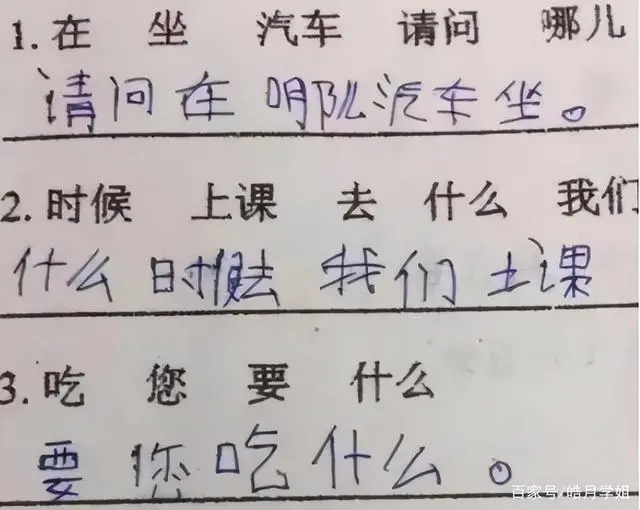 1. 在 坐 汽车 请问 哪儿
请问在哪儿汽车坐。
2. 时候 上课 去 什么 我们
什么时候去我们上课
3. 吃 您 要 什么
要您吃什么。
百家号/皓月学姐